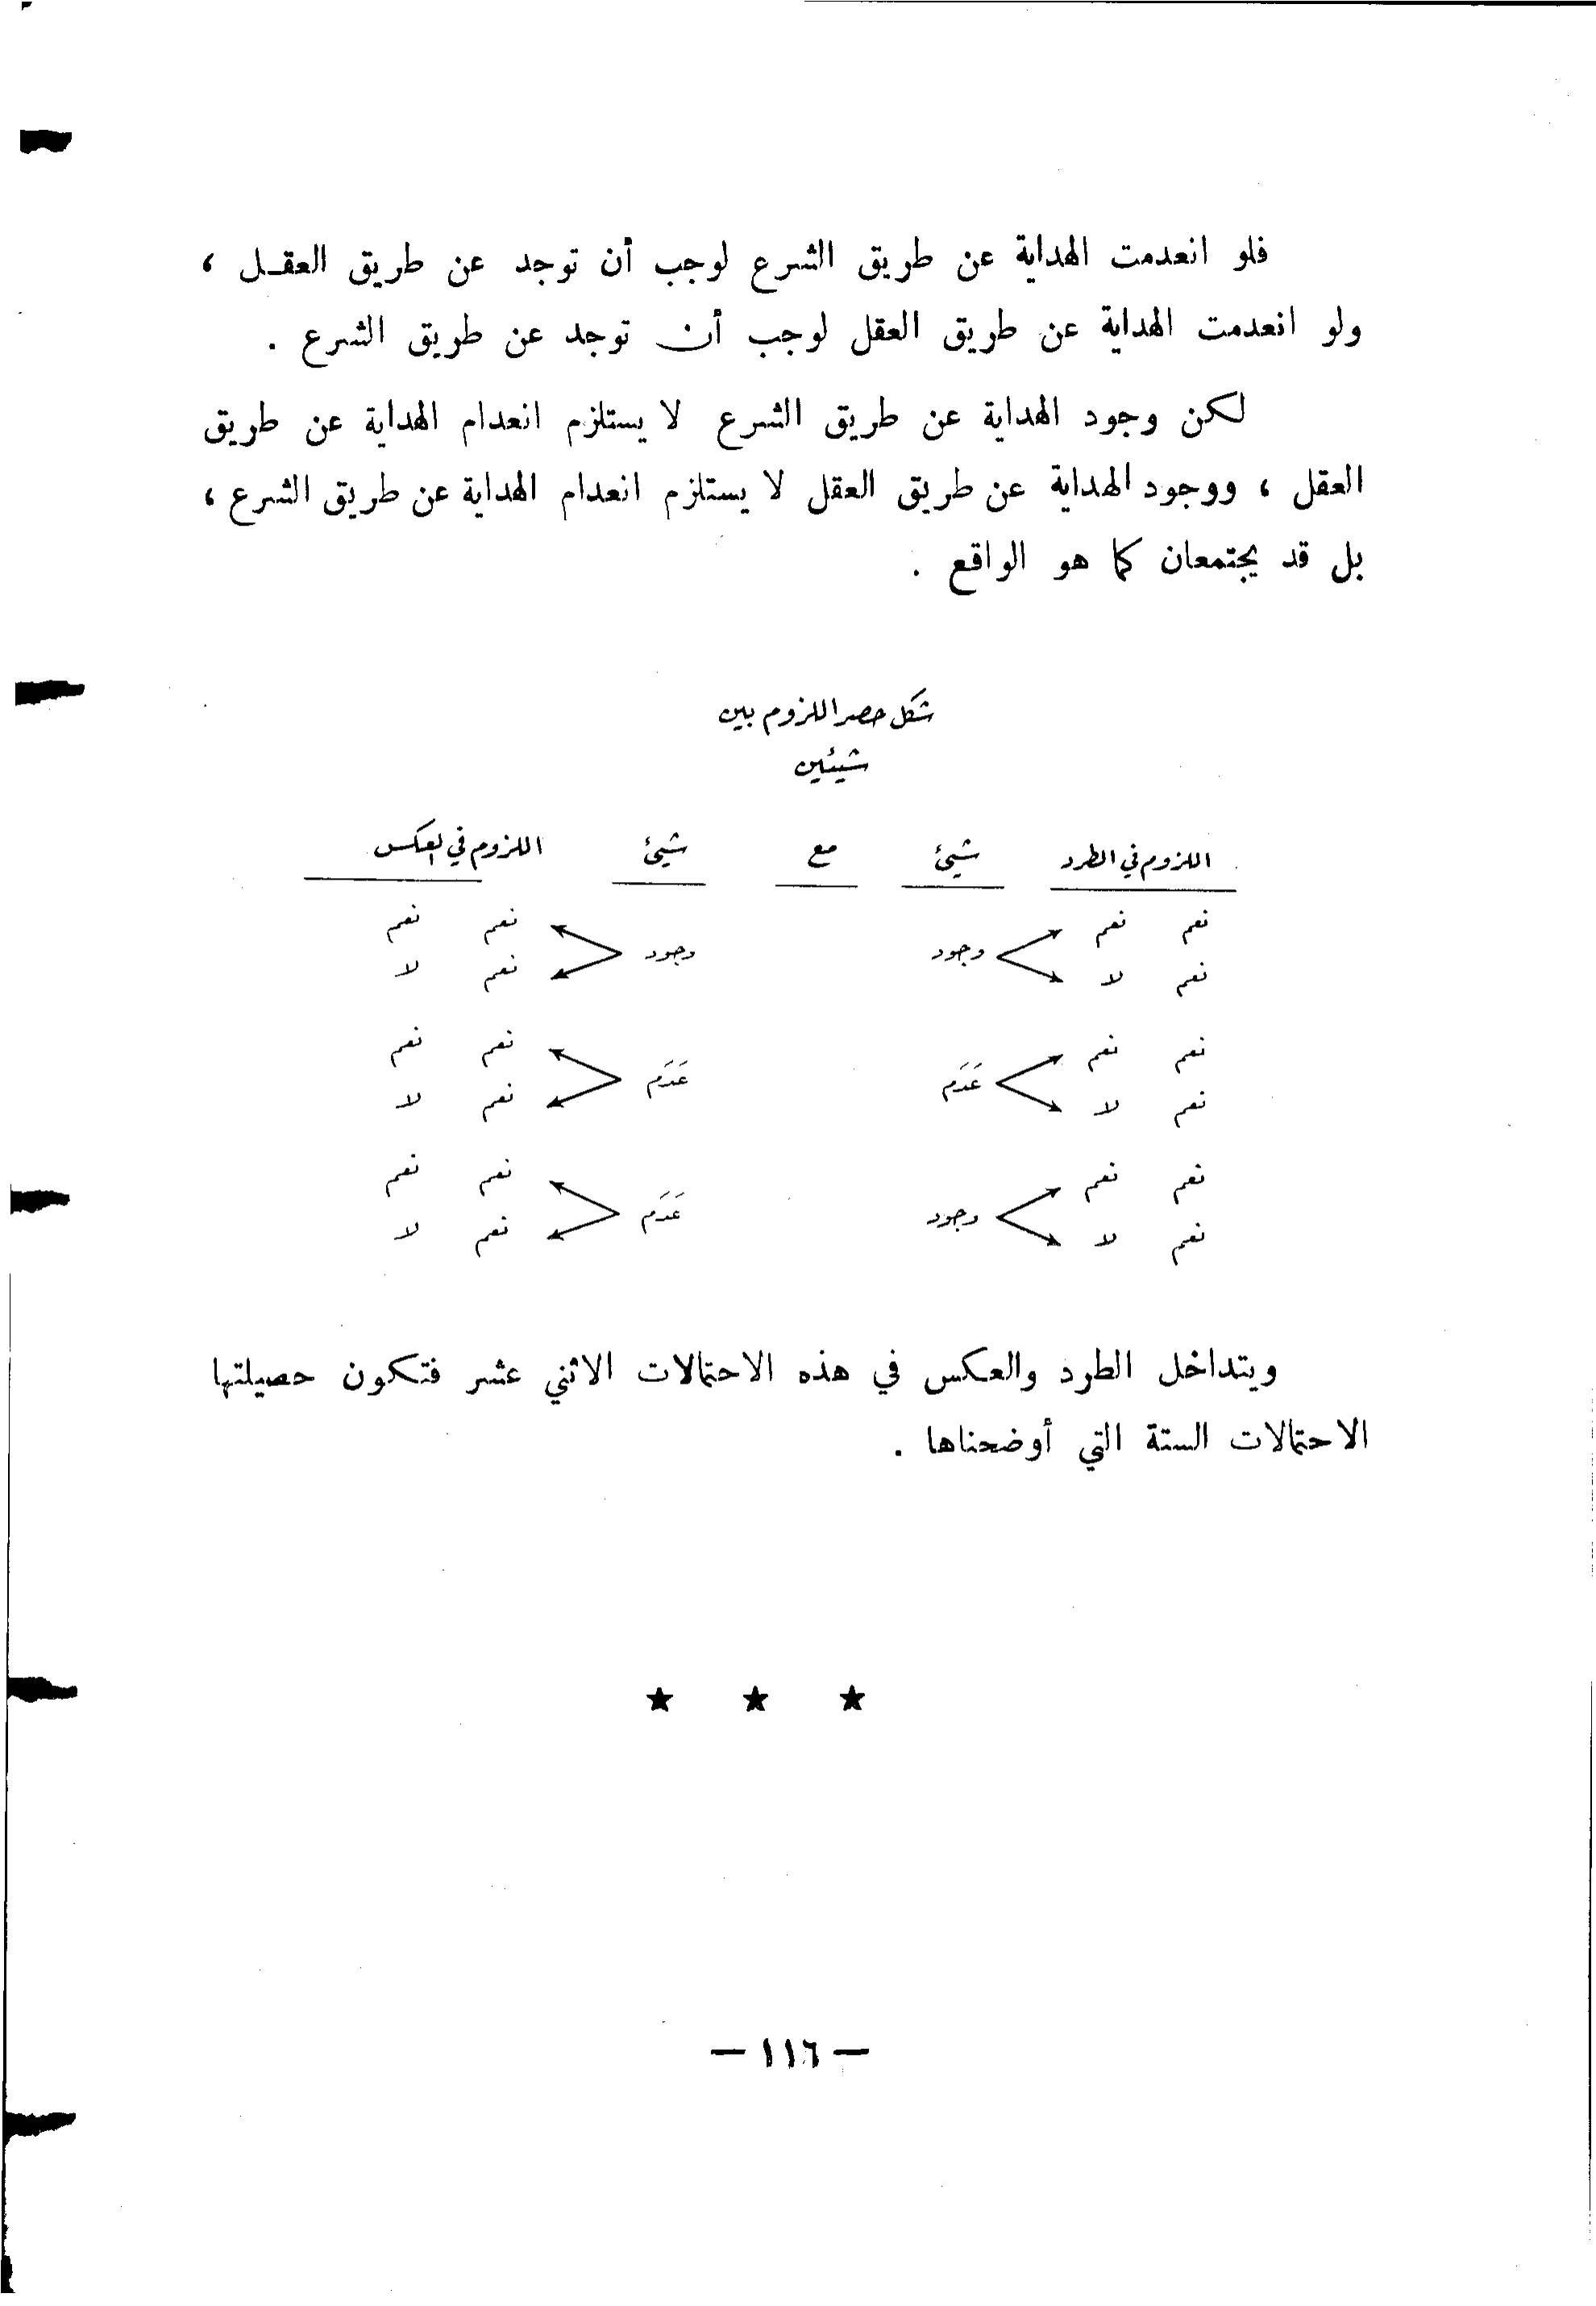 فلو انعدمت الهداية عن طريق الشرع لوجب أن توجد عن طريق العقـل ،
ولو انعدمت الهداية عن طريق العقل لوجب أن توجد عن طريق الشرع .
لكن وجود الهداية عن طريق الشرع لا يستلزم انعدام الهداية عن طريق
العقل ، ووجود الهداية عن طريق العقل لا يستلزم انعدام الهداية عن طريق الشرع ،
بل قد يجتمعان كما هو الواقع .
شكل حصر اللزوم بين
شيئين
اللزوم في الطرد شيئ مع شيئ اللزوم في العكس
نعم نعم نعم نعم
وجود وجود
نعم لا نعم لا
نعم نعم نعم نعم
عَدَم عَدَم
نعم لا نعم لا
نعم نعم نعم نعم
وجود عَدَم
نعم لا نعم لا
ويتداخل الطرد والعكس في هذه الاحتمالات الاثني عشر فتكون حصيلتها
الاحتمالات الستة التي أوضحناها .
★ ★ ★
— ١١٦ —